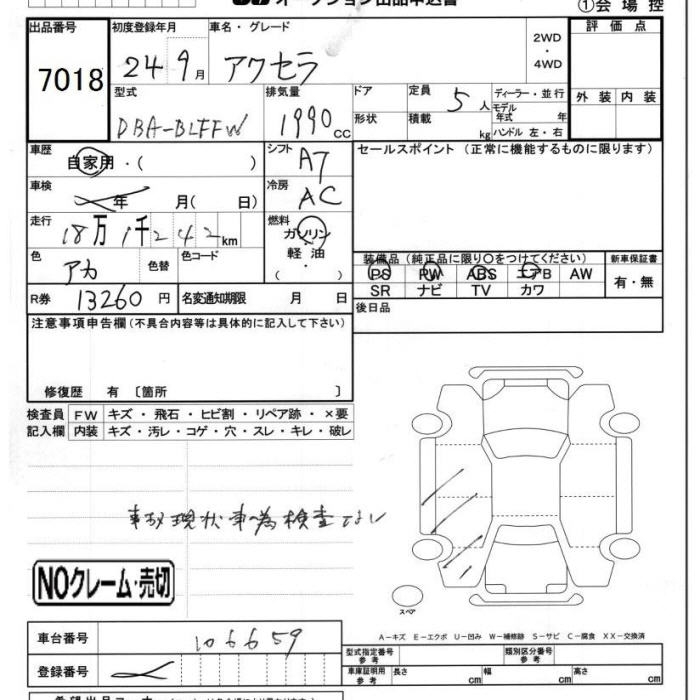 オークション出品申込書
①会 場 控
出品番号 7018
初度登録年月 24 9月
車名・グレード アクセラ
2WD ・ 4WD
評 価 点
外 装 内 装
型式 DBA-BLFFW
排気量 1990 cc
ドア 形状
定員 5 人
積載 kg
ディーラー・並行
モデル年式 年
ハンドル 左・右
車歴 自家用・( )
シフト A7
セールスポイント (正常に機能するものに限ります)
車検 年 月( 日)
冷房 AC
走行 18万1千242km
燃料 ガソリン ・ 軽 油 ・ ( )
色 アカ 色替 色コード
装備品(純正品に限り○をつけてください)
新車保証書
PS PW ABS エアB AW
SR ナビ TV カワ
有・無
R券 13260 円
名変通知期限 月 日
後日品
注意事項申告欄(不具合内容等は具体的に記入して下さい)
修復歴 有 〔箇所 〕
検査員 FW キズ・飛石・ヒビ割・リペア跡・×要
記入欄 内装 キズ・汚レ・コゲ・穴・スレ・キレ・破レ
事故現状車為検査なし
NOクレーム・売切
スペア
A－キズ E－エクボ U－凹み W－補修跡 S－サビ C－腐食 XX－交換済
車台番号 106659
型式指定番号 参考
類別区分番号 参考
登録番号
車庫証明用 参考 長さ cm 幅 cm 高さ cm
希望出品コーナー